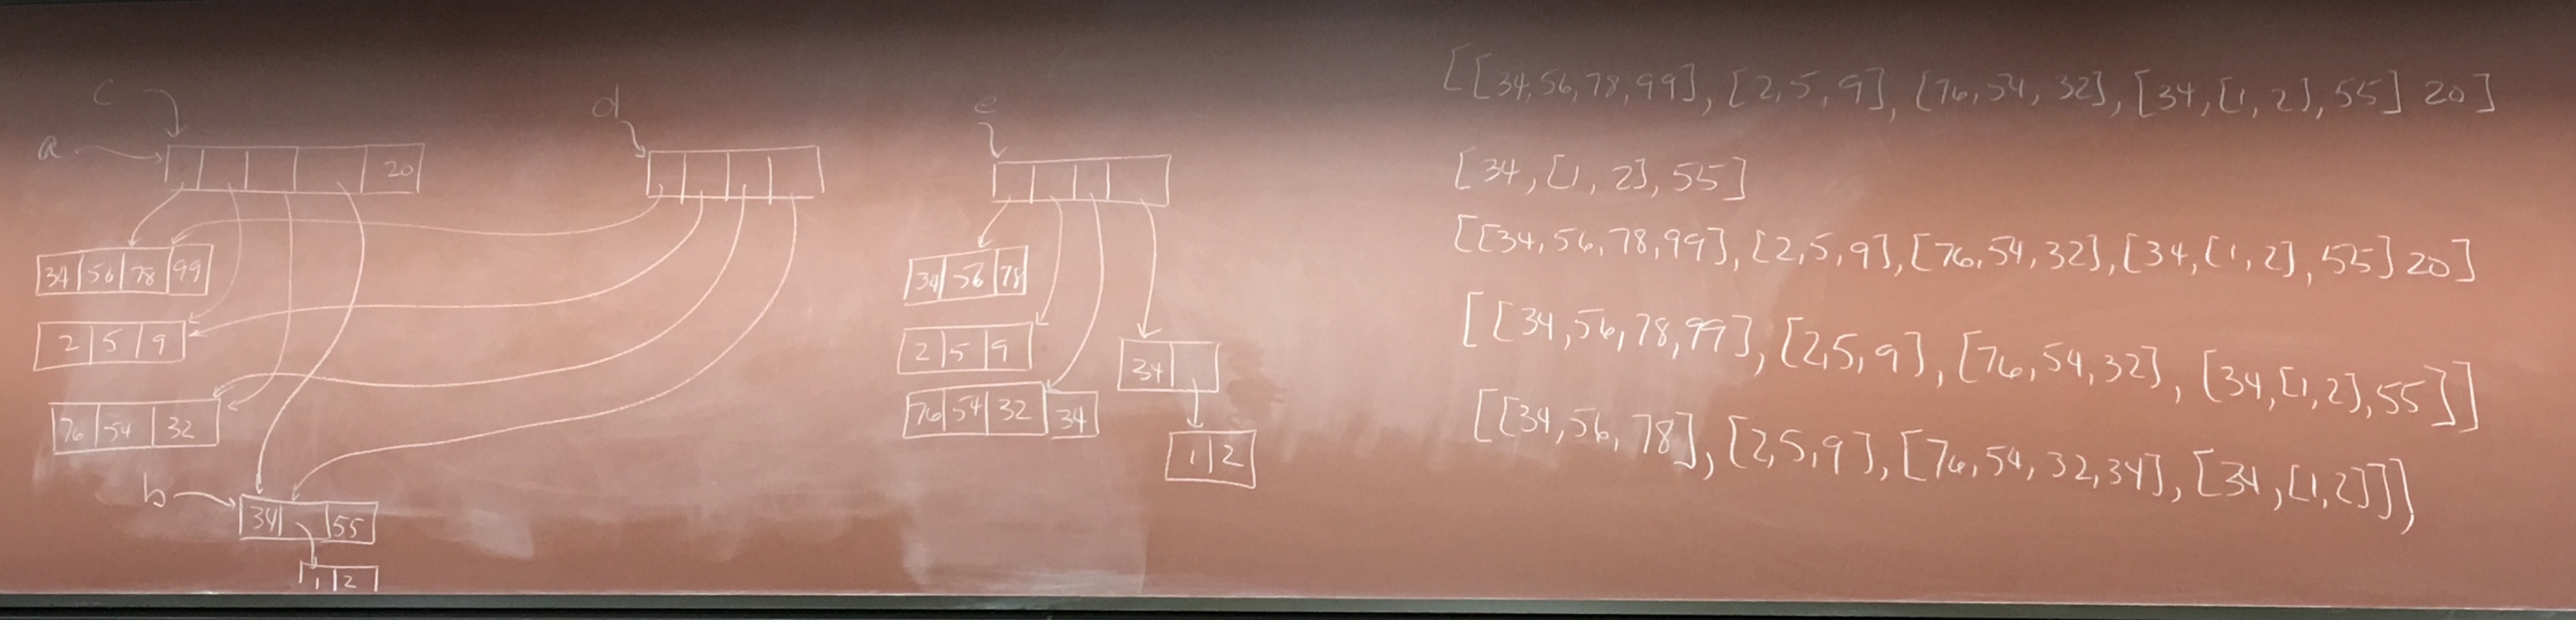 c
d
e
a
20
34 56 78 99
34 56 78
2 5 9
2 5 9
34
76 54 32
76 54 32 34
1 2
b
34 55
1 2
[[34,56,78,99],[2,5,9],[76,54,32],[34,[1,2],55] 20]
[34,[1,2],55]
[[34,56,78,99],[2,5,9],[76,54,32],[34,[1,2],55] 20]
[[34,56,78,99],[2,5,9],[76,54,32],[34,[1,2],55]]
[[34,56,78],[2,5,9],[76,54,32,34],[34,[1,2]]]